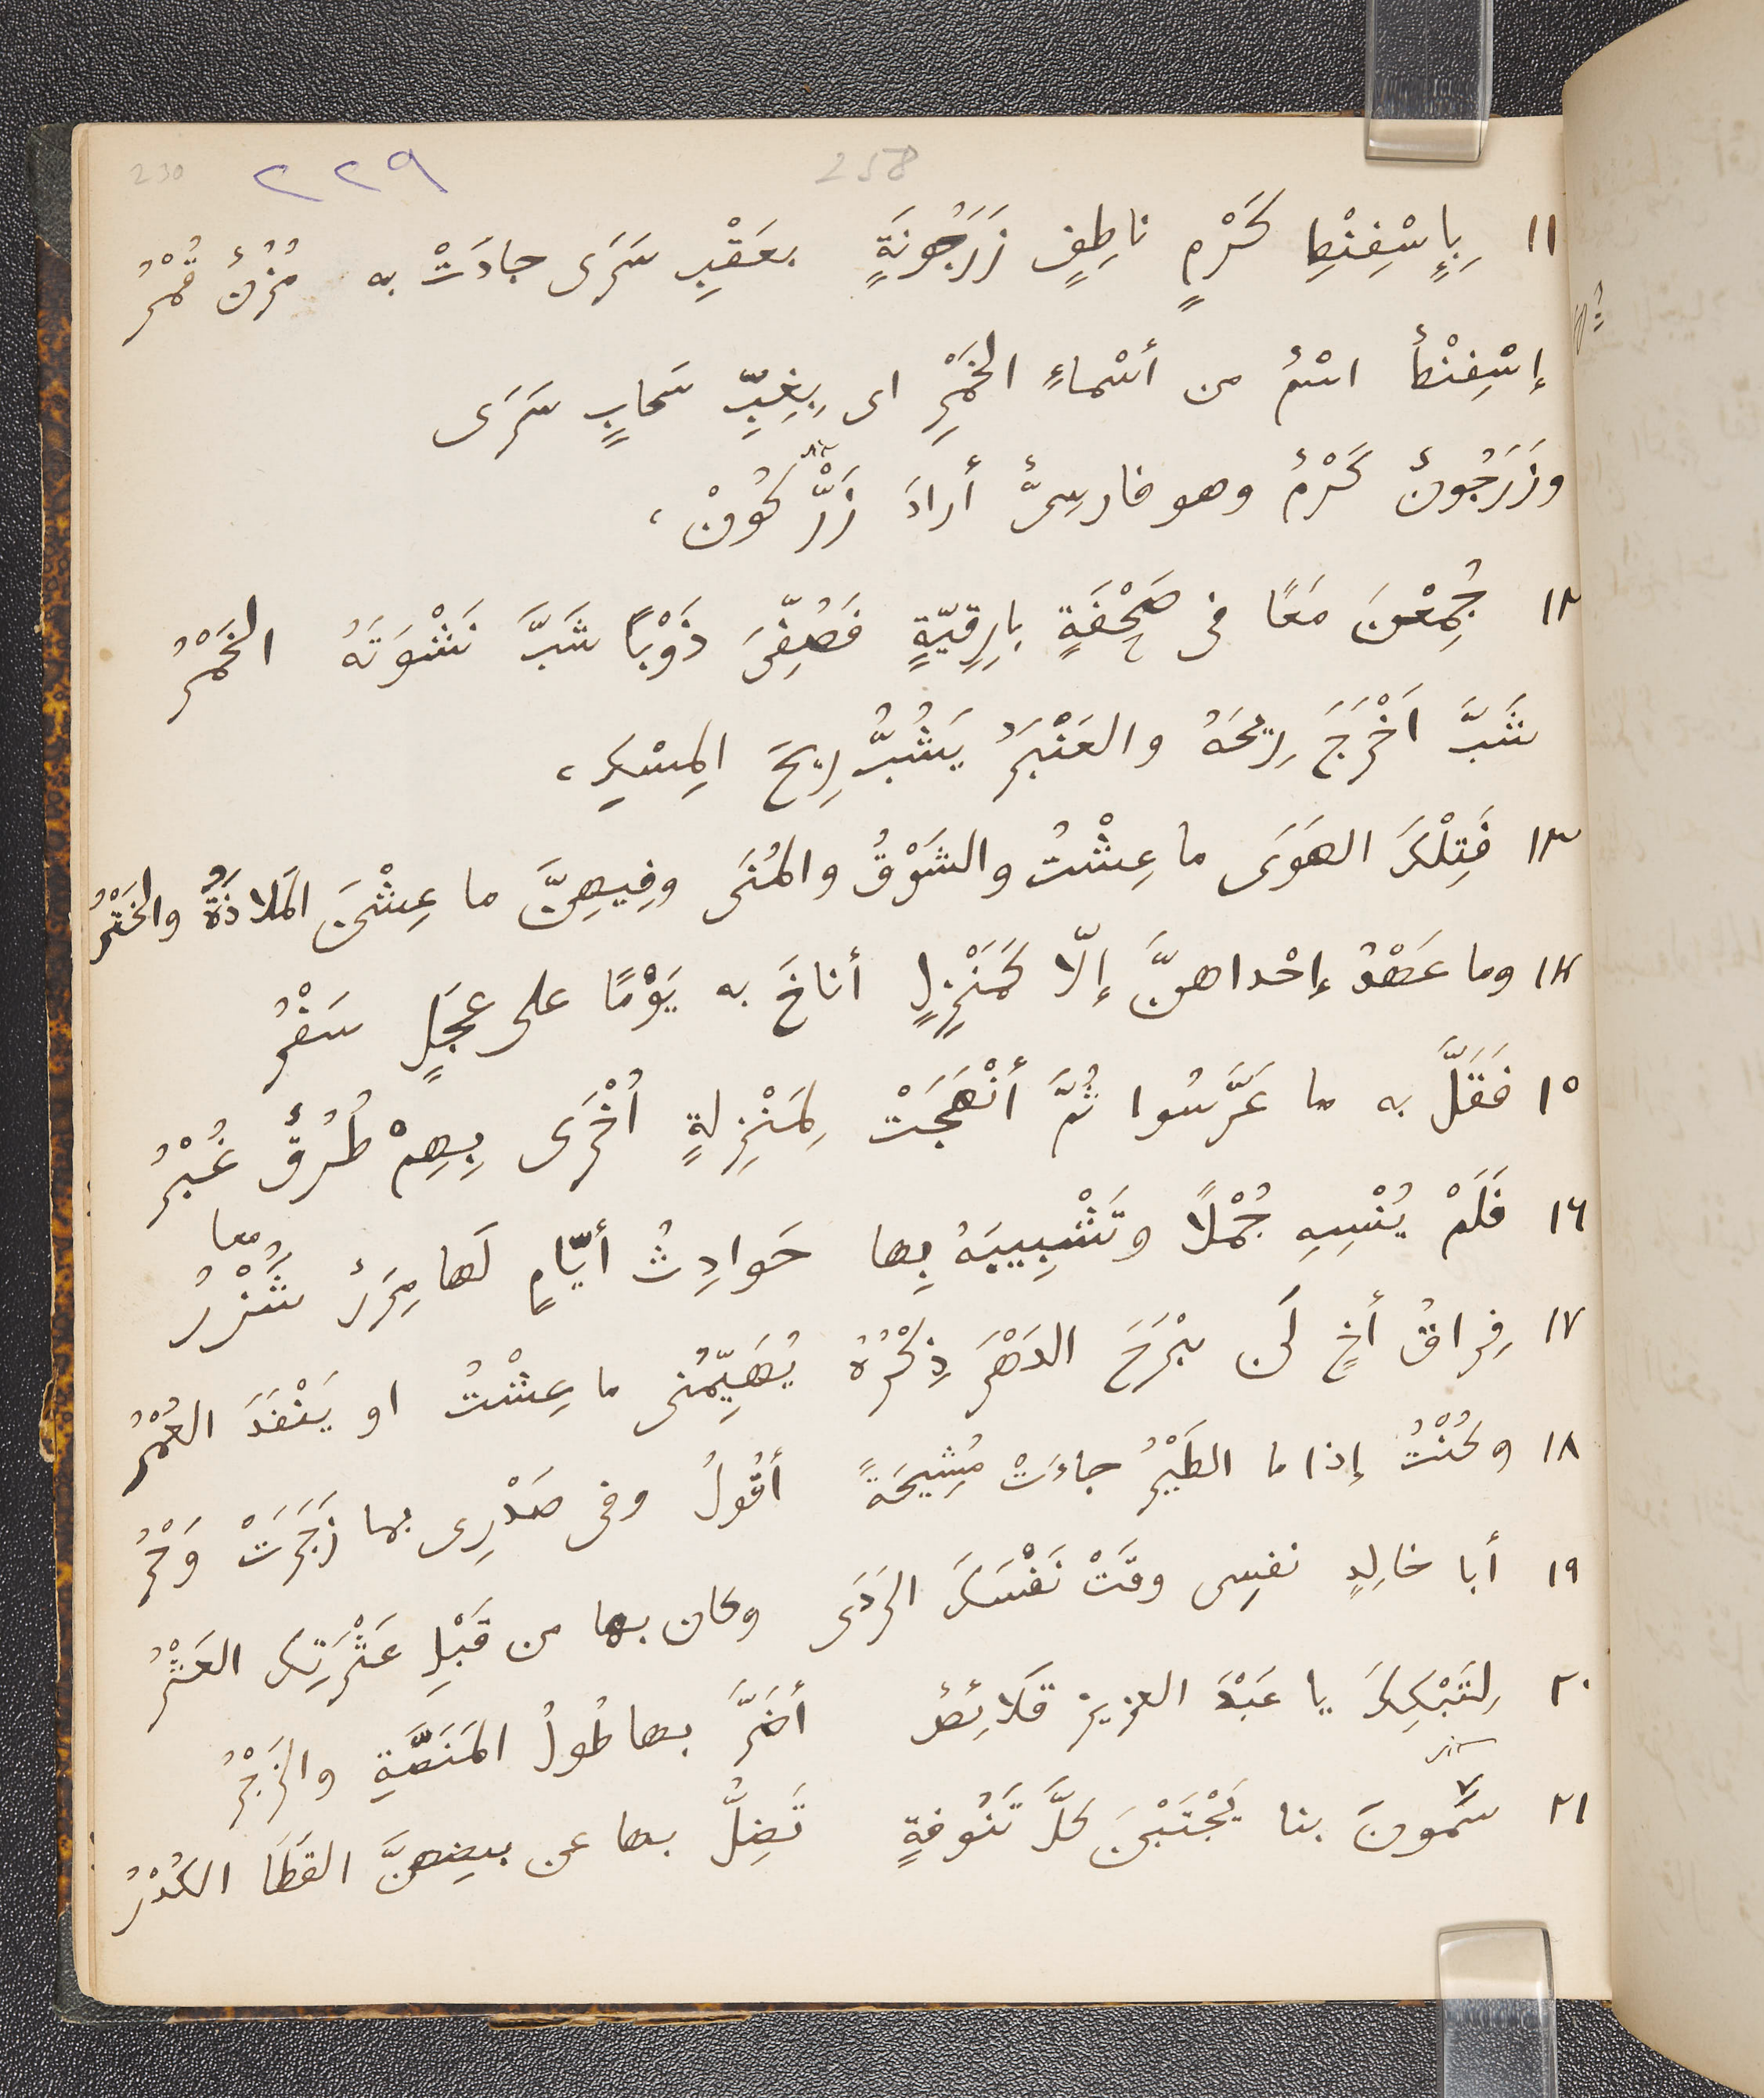 230 ٢٢٩ 258
١١ بِإِسْفِنْطِ كَرْمٍ ناطِفٍ زَرَجُونَةٍ بعَقْبِ سَرَى جادَتْ به مُزْنٌ قُمْرُ
إسْفِنْطٌ اسْمٌ من أسْماءِ الخَمْرِ اى بِغِبِّ سَحابٍ سَرَى
وزَرَجُونٌ كَرْمٌ وهو فارسىٌّ أرادَ زَرّ كُونْ،
١٢ جُمِعْنَ مَعًا فى صَحْفَةٍ بارِقِيّةٍ فَصُفِّىَ ذَوْبًا شَبَّ نَشْوَتَهُ الخَمْرُ
شَبَّ اَخْرَجَ رِيحَهُ والعَنْبَرُ يَشُبُّ رِيحَ المِسْكِ،
١٣ فَتِلْكَ الهَوَى ما عِشْتُ والشَوْقُ والمُنَى وفِيهِنَّ ما عِشْنَ المَلاذَةُ والخَتْرُ
١٤ وما عَهْدُ إحْداهنَّ إلّا كَمَنْزِلٍ أناخَ به يَوْمًا على عَجَلٍ سَفْرُ
١٥ فَقَلَّ به ما عَرَّسُوا ثُمَّ أنْهَجَتْ لِمَنْزِلةٍ أُخْرَى بِهِمْ طُرُقٌ غُبْرُ
معا
١٦ فَلَمْ يُنْسِهِ جُمْلًا وتَشْبِيبَهُ بِها حَوادِثُ أيّامٍ لَها مِرَرٌ شُزْرُ
١٧ فِراقُ أخٍ لَن يبْرَحَ الدَهْرَ ذِكْرُهُ يُهَيِّمُنى ما عِشْتُ او يَنْفَدَ العُمْرُ
١٨ وكُنْتُ إذا ما الطَيْرُ جاءَتْ مُشِيحَةً أقُولُ وفى صَدْرِى بها زَجَرَتْ وَحْرُ
١٩ أبا خالِدٍ نفسِى وقَتْ نَفْسَكَ الرَدَى وكان بها من قَبْلِ عَثْرَتِكَ العَثْرُ
٢٠ لِتَبْكِكَ يا عَبْدَ العزيز قَلائصٌ أضَرَّ بها طُولُ المَنَصَّةِ والزَجْرُ
٢١ سَمَونَ بنا يَجْتَبْنَ كلَّ تَنُوفةٍ تَضِلُّ بها عن بيضِهنَّ القَطَا الكُدْرُ